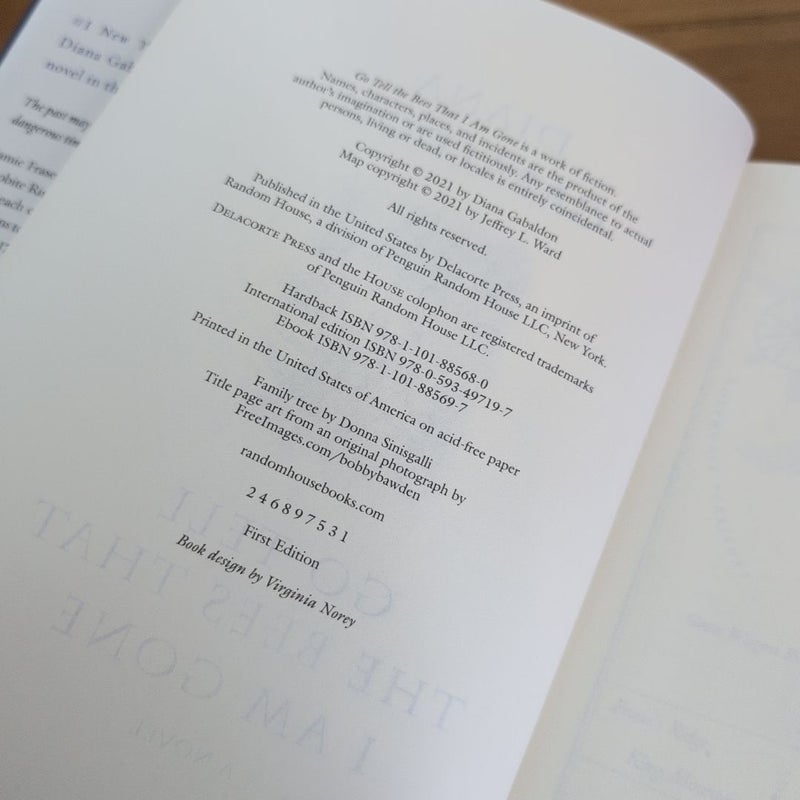 #1 New
Diana Gab
novel in th
The past may
dangerous tim
amie Frase
obite Ris
each
Go Tell the Bees That I Am Gone is a work of fiction.
Names, characters, places, and incidents are the product of the
author's imagination or are used fictitiously. Any resemblance to actual
persons, living or dead, or locales is entirely coincidental.
Copyright © 2021 by Diana Gabaldon
Map copyright © 2021 by Jeffrey L. Ward
All rights reserved.
Published in the United States by Delacorte Press, an imprint of
Random House, a division of Penguin Random House LLC, New York.
DELACORTE PRESS and the HOUSE colophon are registered trademarks
of Penguin Random House LLC.
Hardback ISBN 978-1-101-88568-0
International edition ISBN 978-0-593-49719-7
Ebook ISBN 978-1-101-88569-7
Printed in the United States of America on acid-free paper
Family tree by Donna Sinisgalli
Title page art from an original photograph by
FreeImages.com/bobbybawden
randomhousebooks.com
2 4 6 8 9 7 5 3 1
First Edition
Book design by Virginia Norey
DIANA
GO TELL
THE BEES THAT
I AM GONE
A NOVEL